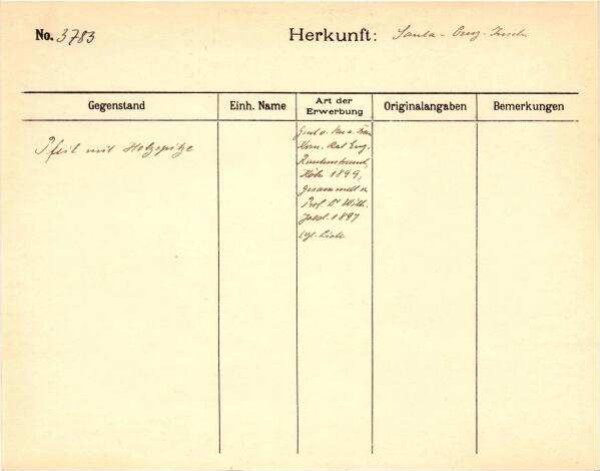 No. 3783
Herkunft: Santa-Cruz-Inseln
Gegenstand
Einh. Name
Art der
Erwerbung
Originalangaben
Bemerkungen
Pfeil mit Holzspitze
Kom. Rat Eug.
Rautenstrauch,
Köln 1899,
gesammelt v.
Prof. Dr Wilh.
Joest. 1897
vgl. Liste